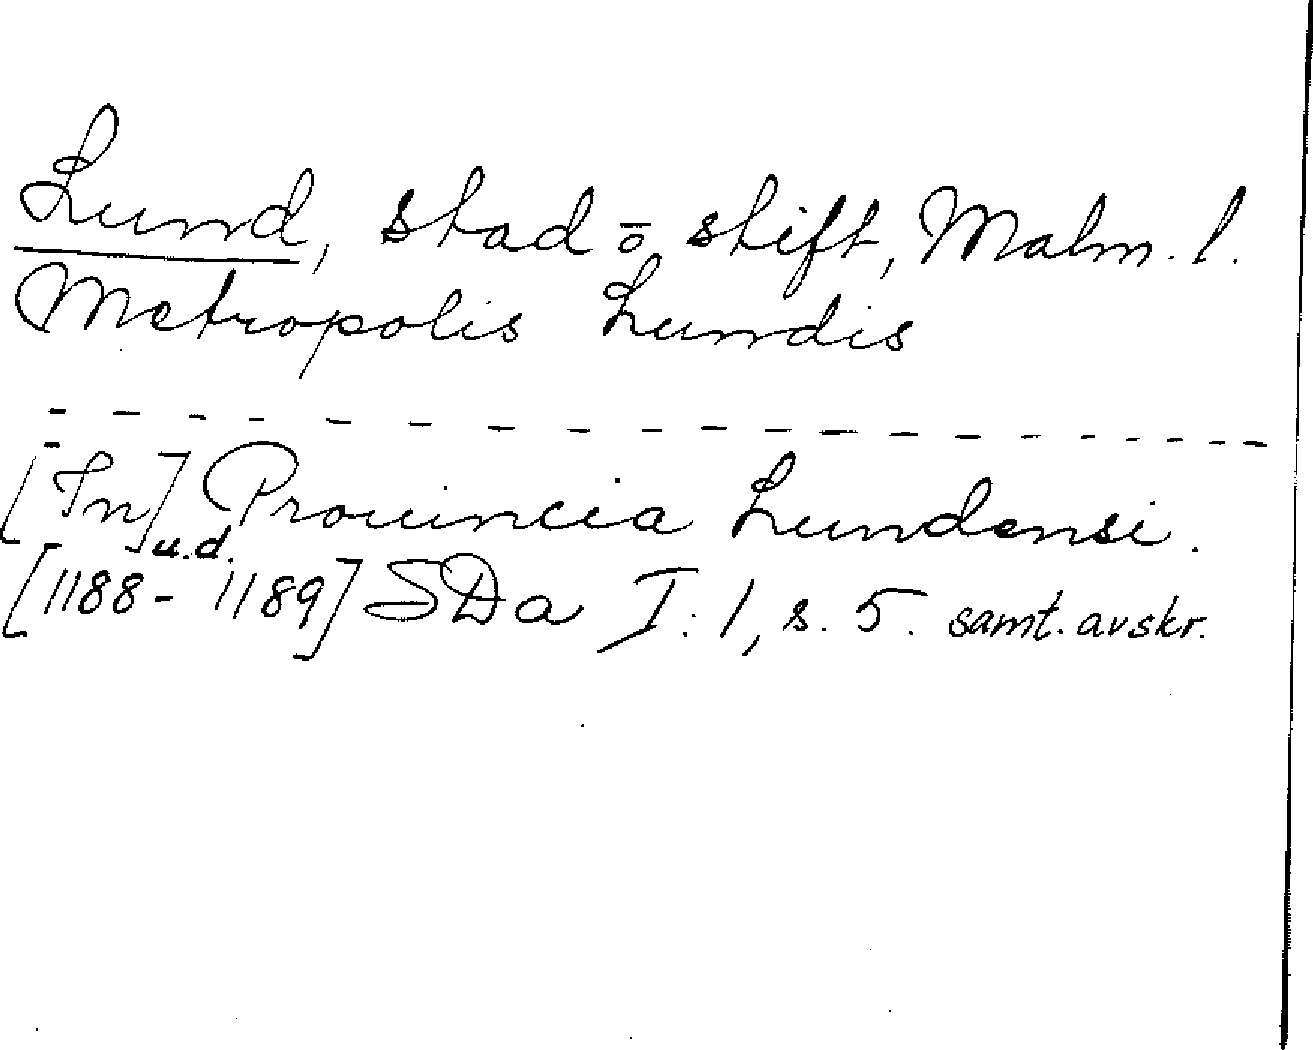 Lund, stad o stift, Malm. l.
Metropolis Lundis
- - - - - - - - - - - - - - - - - -
[In] Prouincia Lundensi.
u.d.
[1188-1189] SDa I:1, s. 5. samt. avskr.